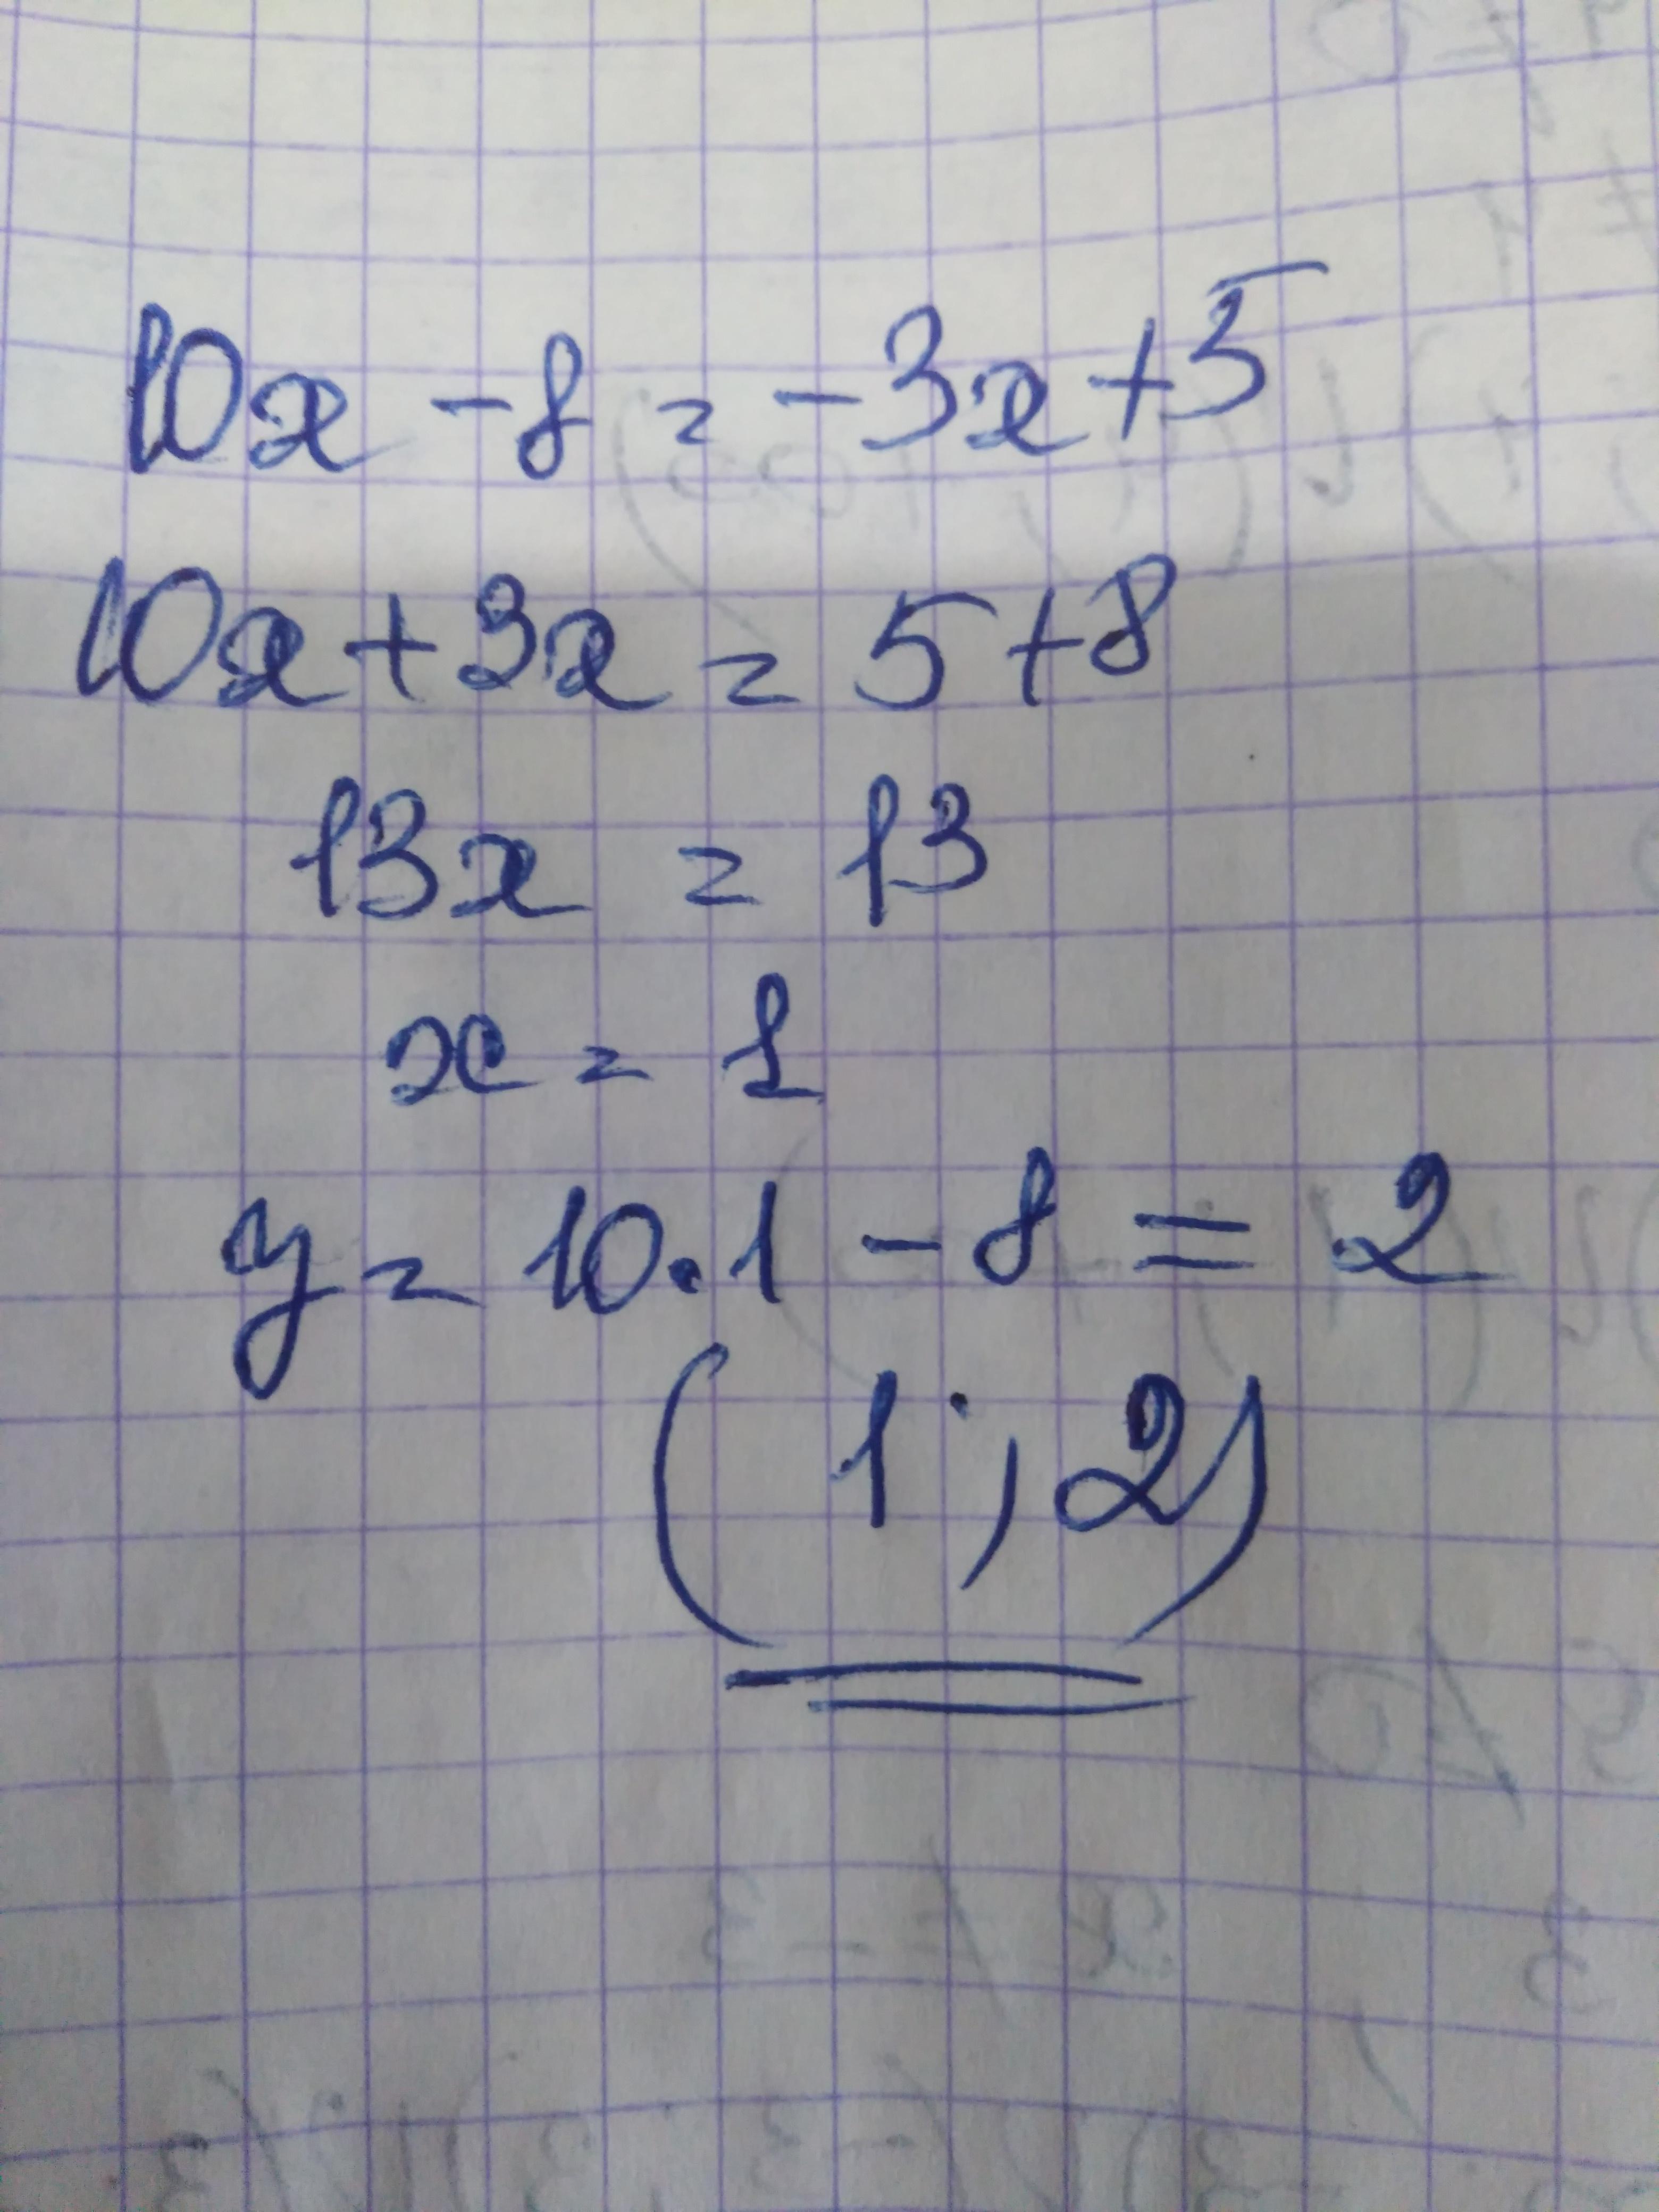 10x - 8 = -3x + 5
10x + 3x = 5 + 8
13x = 13
x = 1
y = 10·1 - 8 = 2
(1; 2)